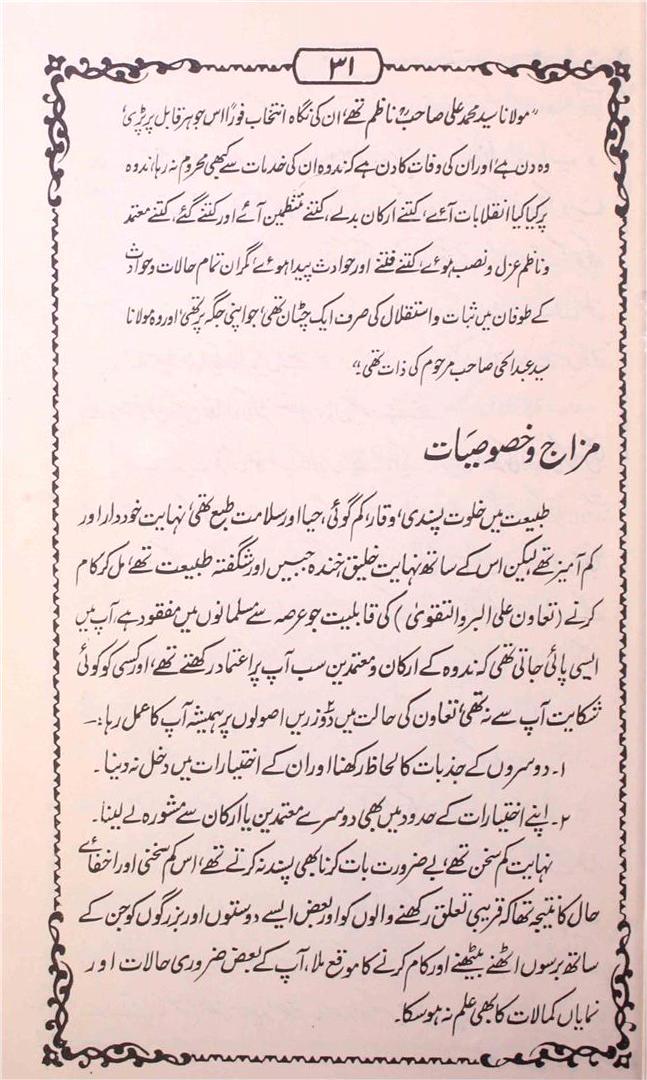 ۳۱
"مولانا سید محمد علی صاحبؒ ناظم تھے، ان کی نگاہ انتخاب فوراً اس جوہر قابل پر پڑی،
وہ دن ہے، اور ان کی وفات کا دن ہے کہ ندوہ ان کی خدمات سے کبھی محروم نہ رہا، ندوہ
پر کیا کیا انقلابات آئے، کتنے ارکان بدلے، کتنے منتظمین آئے اور کتنے گئے، کتنے معتمد
و ناظم عزل و نصب ہوئے، کتنے فتنے اور حوادث پیدا ہوئے، مگر ان تمام حالات و حوادث
کے طوفان میں ثبات و استقلال کی صرف ایک چٹان تھی، جو اپنی جگہ پر تھی، اور وہ مولانا
سید عبدالحی صاحب مرحوم کی ذات تھی۔"
مزاج و خصوصیات
طبیعت میں خلوت پسندی، وقار، کم گوئی، حیا اور سلامت طبع تھی، نہایت خوددار اور
کم آمیز تھے لیکن اس کے ساتھ نہایت خلیق خندہ جبیں اور شگفتہ طبیعت تھے، مل کر کام
کرنے (تعاون علی البر والتقویٰ) کی قابلیت جو عرصہ سے مسلمانوں میں مفقود ہے، آپ میں
ایسی پائی جاتی تھی کہ ندوہ کے ارکان و معتمدین سب آپ پر اعتماد رکھتے تھے، اور کسی کو کوئی
شکایت آپ سے نہ تھی، تعاون کی حالت میں دو زریں اصولوں پر ہمیشہ آپ کا عمل رہا:۔
۱۔ دوسروں کے جذبات کا لحاظ رکھنا اور ان کے اختیارات میں دخل نہ دینا۔
۲۔ اپنے اختیارات کے حدود میں بھی دوسرے معتمدین یا ارکان سے مشورہ لے لینا۔
نہایت کم سخن تھے، بے ضرورت بات کرنا بھی پسند نہ کرتے تھے، اس کم سخنی اور اخفائے
حال کا نتیجہ تھا کہ قریبی تعلق رکھنے والوں کو اور بعض ایسے دوستوں اور بزرگوں کو جن کے
ساتھ برسوں اٹھنے بیٹھنے اور کام کرنے کا موقع ملا، آپ کے بعض ضروری حالات اور
نمایاں کمالات کا بھی علم نہ ہو سکا۔